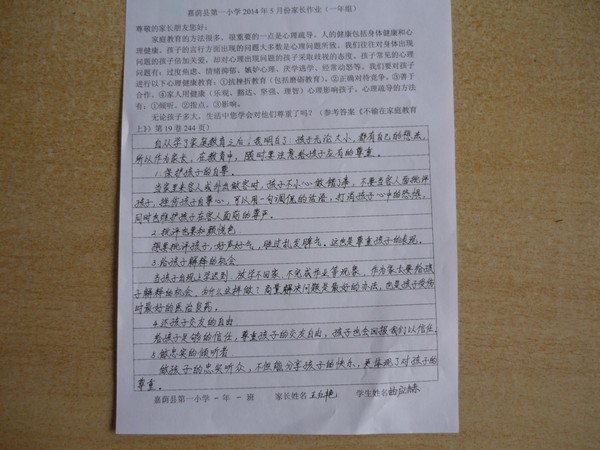 嘉荫县第一小学2014年5月份家长作业（一年级）
尊敬的家长朋友您好：
家庭教育的方法很多，很重要的一点是心理疏导。人的健康包括身体健康和心
理健康。孩子的言行方面出现的问题大多数是心理问题所致。我们往往对身体出现
问题的孩子倍加关爱，却对心理出现问题的孩子采取歧视的态度。孩子常见的心理
问题有：过度焦虑、情绪抑郁、嫉妒心理、厌学逃学、经常动怒等。我们要对孩子
进行以下心理健康教育：①抗挫折教育（包括磨砺教育）。②正确对待竞争。③善于
合作。④家人用健康（乐观、豁达、坚强、理智）心理影响孩子。心理疏导的方法
有：①倾听。②指点。③影响。
无论孩子多大，生活中您学会对他们尊重了吗？（参考答案《不输在家庭教育
上》）第19卷244页）
自从学了家庭教育之后，我明白了：孩子无论大小，都有自己的想法，
所以作为家长，在教育中，随时要注意给孩子应有的尊重。
1.保护孩子的自尊。
当家里来客人或外出做客时，孩子不小心做错了事，不要当客人面批评
孩子，挫伤孩子自尊心，可以用一句调侃的话语，打消孩子心中的恐惧，
同时也维护孩子在客人面前的尊严。
2.批评也要和颜悦色
想要批评孩子，好声好气，胜过乱发脾气。这也是尊重孩子的表现。
3.给孩子解释的机会
当孩子出现上学迟到、放学不回家、不完成作业等现象，作为家长要给孩
子解释的机会，为什么这样做？商量解决问题是最好的办法，也是孩子受伤
时最好的医治良药。
4.还孩子交友的自由
给孩子足够的信任，尊重孩子的交友自由，孩子也会回报我们以信任。
5.做忠实的倾听者
做孩子的忠实听众，不但能分享孩子的快乐，更体现了对孩子的
尊重。
嘉荫县第一小学 一年 一班 家长姓名 王 艳 学生姓名